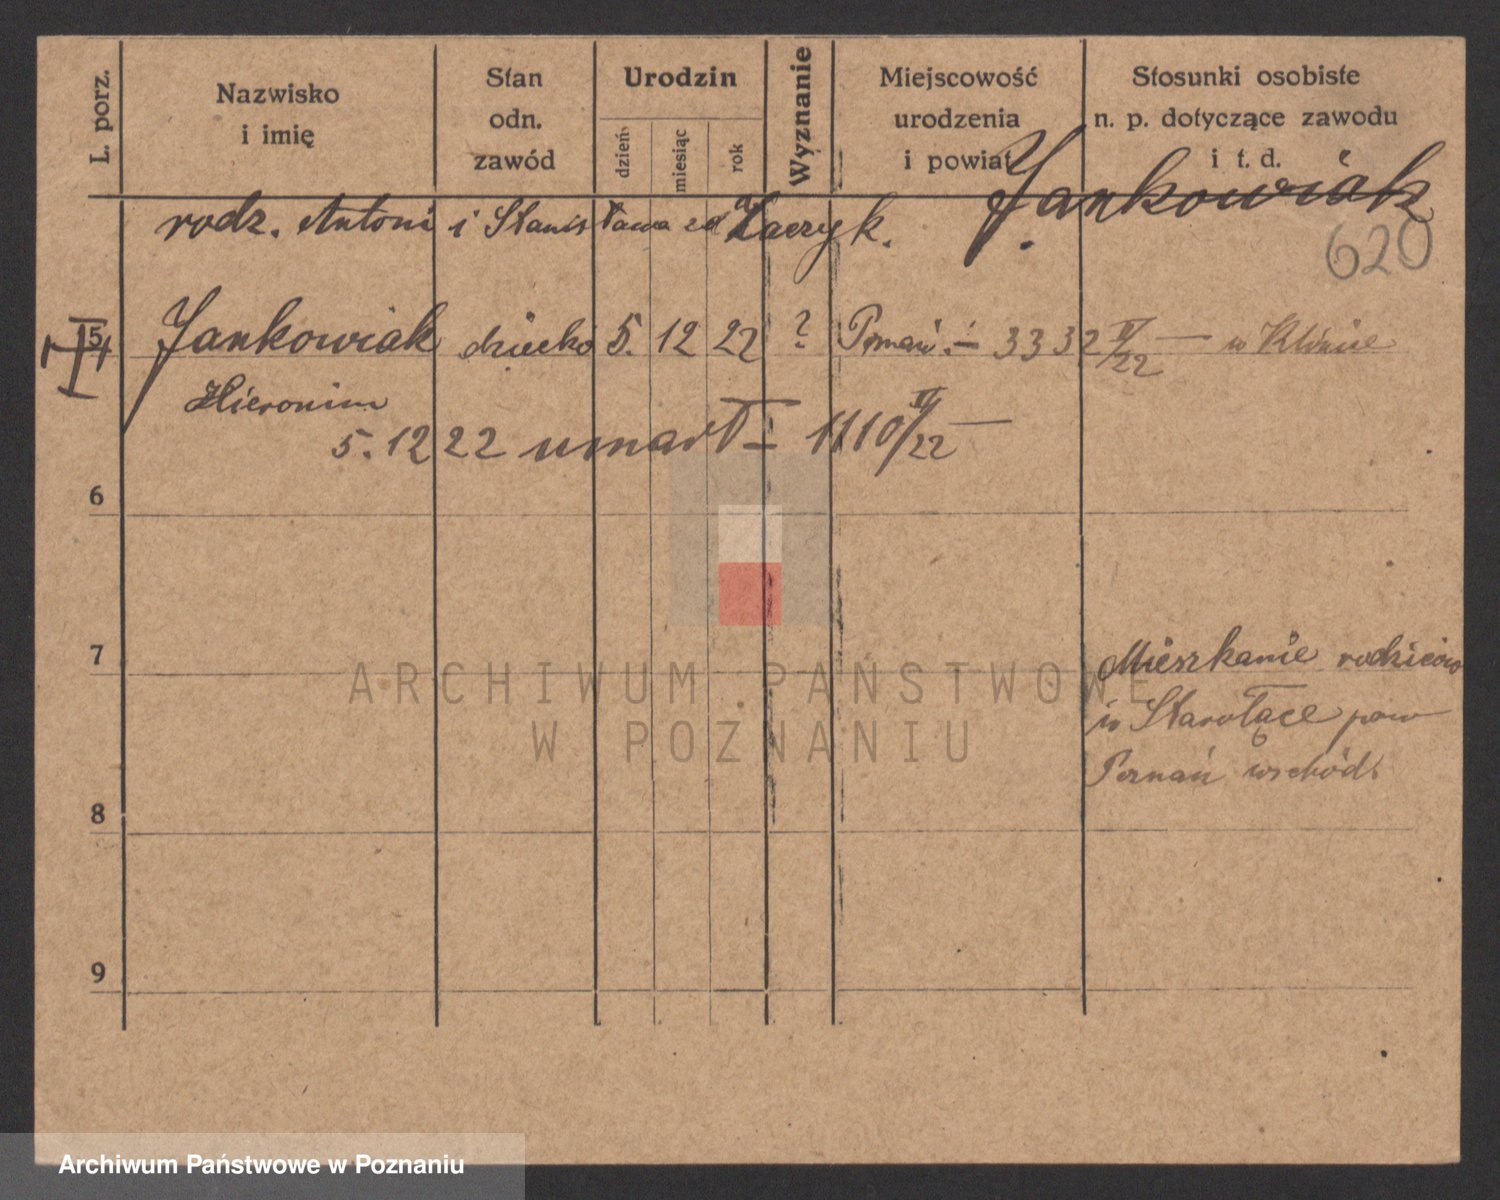 L. porz.
Nazwisko
i imię
Stan
odn.
zawód
Urodzin
dzień
miesiąc
rok
Wyznanie
Miejscowość
urodzenia
i powiat
Stosunki osobiste
n. p. dotyczące zawodu
i t. d.
Jankowiak
rodz. Antoni i Stanisława zd
620
5 Jankowiak dziecko 5. 12 22 ? Poznań. — 3332 /22 — w Klinice
Hieronim
5. 12 22 umarł — 1110 /22 —
6
7
Mieszkanie rodziców
w Starołęce pow
Poznań wschód.
8
9
ARCHIWUM PAŃSTWOWE
W POZNANIU
Archiwum Państwowe w Poznaniu